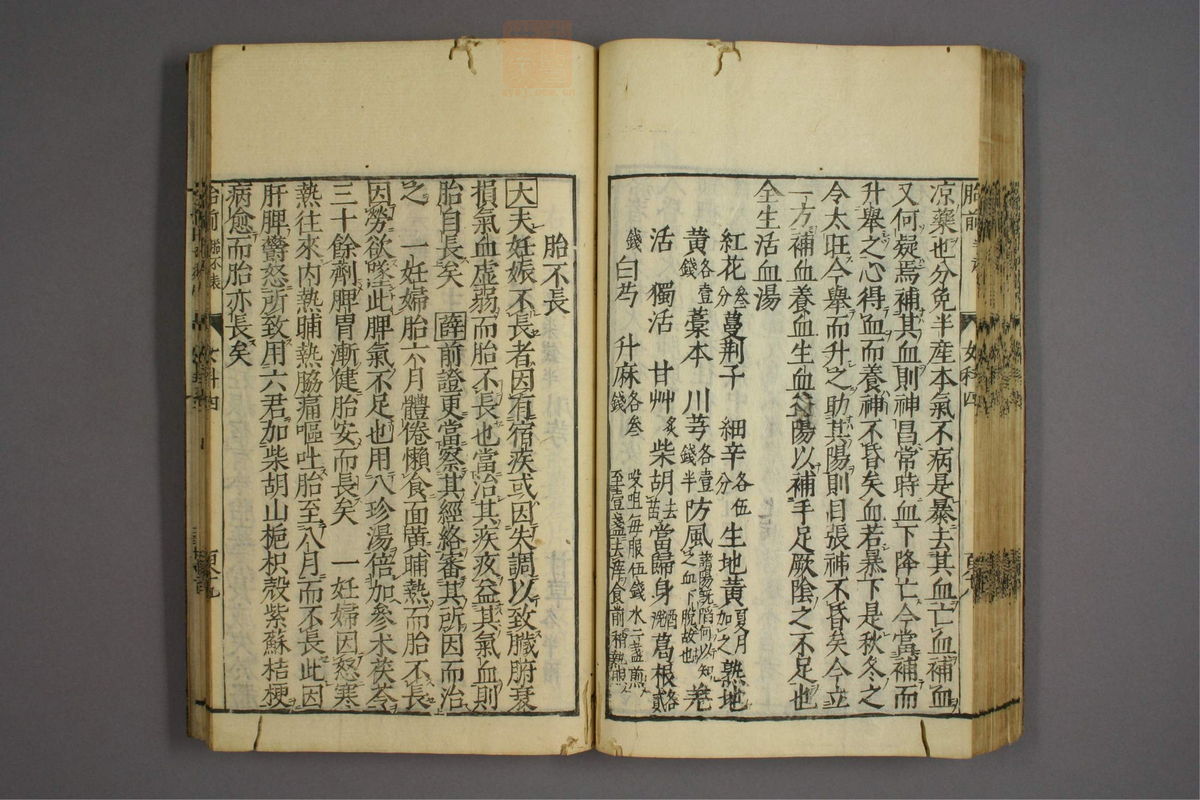 胎前
女科四
凉藥也分免半産本氣不病是暴去其血亡血補血
又何疑焉補其血則神昌常時血下降亡今當補而
升舉之心得血而養神不昏矣血若暴下是秋冬之
令太旺今舉而升之助其陽則目張神不昏矣今立
一方補血養血生血益陽以補手足厥陰之不足也
全生活血湯
紅花叁分 蔓荆子 細辛各伍分 生地黄夏月加之 熟地
黄各壹錢 藁本 川芎各壹錢半 防風諸陽既陷何以知之血下脱故也 羌
活 獨活 甘艸炙 柴胡去苗 當歸身酒洗 葛根各貳
錢 白芍 升麻各叁錢
㕮咀毎服伍錢水二盞煎
至壹盞去滓食前稍熱服
胎不長
大夫妊娠不長者因有宿疾或因失調以致臟腑衰
損氣血虚弱而胎不長也當治其疾疢益其氣血則
胎自長矣 薛前證更當察其經絡審其所因而治
之 一妊婦胎六月體倦懶食面黄晡熱而胎不長
因勞欲墜此脾氣不足也用八珍湯倍加參术茯苓
三十餘劑脾胃漸健胎安而長矣 一妊婦因怒寒
熱往來内熱晡熱脇痛嘔吐胎至八月而不長此因
肝脾鬱怒所致用六君加柴胡山梔枳殻紫蘇桔梗
病愈而胎亦長矣
胎前
女科四